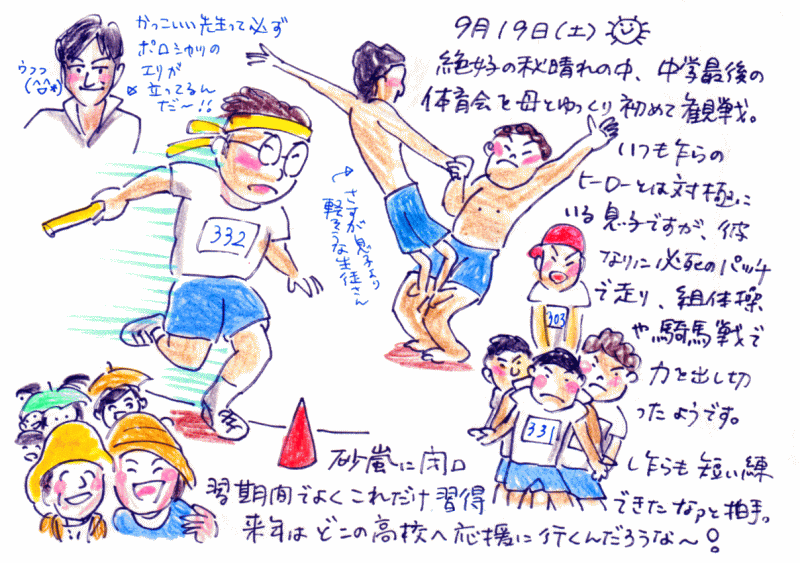 かっこいい先生って必ず
ポロシャツの
エリが
立ってるん
だ〜!!
ウフフ
(^^*)
9月19日(土)
絶好の秋晴れの中、中学最後の
体育会を母とゆっくり初めて観戦。
いつも乍らの
ヒーローとは対極に
いる息子ですが、彼
なりに必死のパッチ
で走り、組体操
や騎馬戦で
力を出し切
ったようです。
さすが息子より
軽そうな生徒さん
332
303
331
砂嵐に閉口
し乍らも短い練
習期間でよくこれだけ習得
できたなァと拍手。
来年はどこの高校へ応援に行くんだろうな〜!